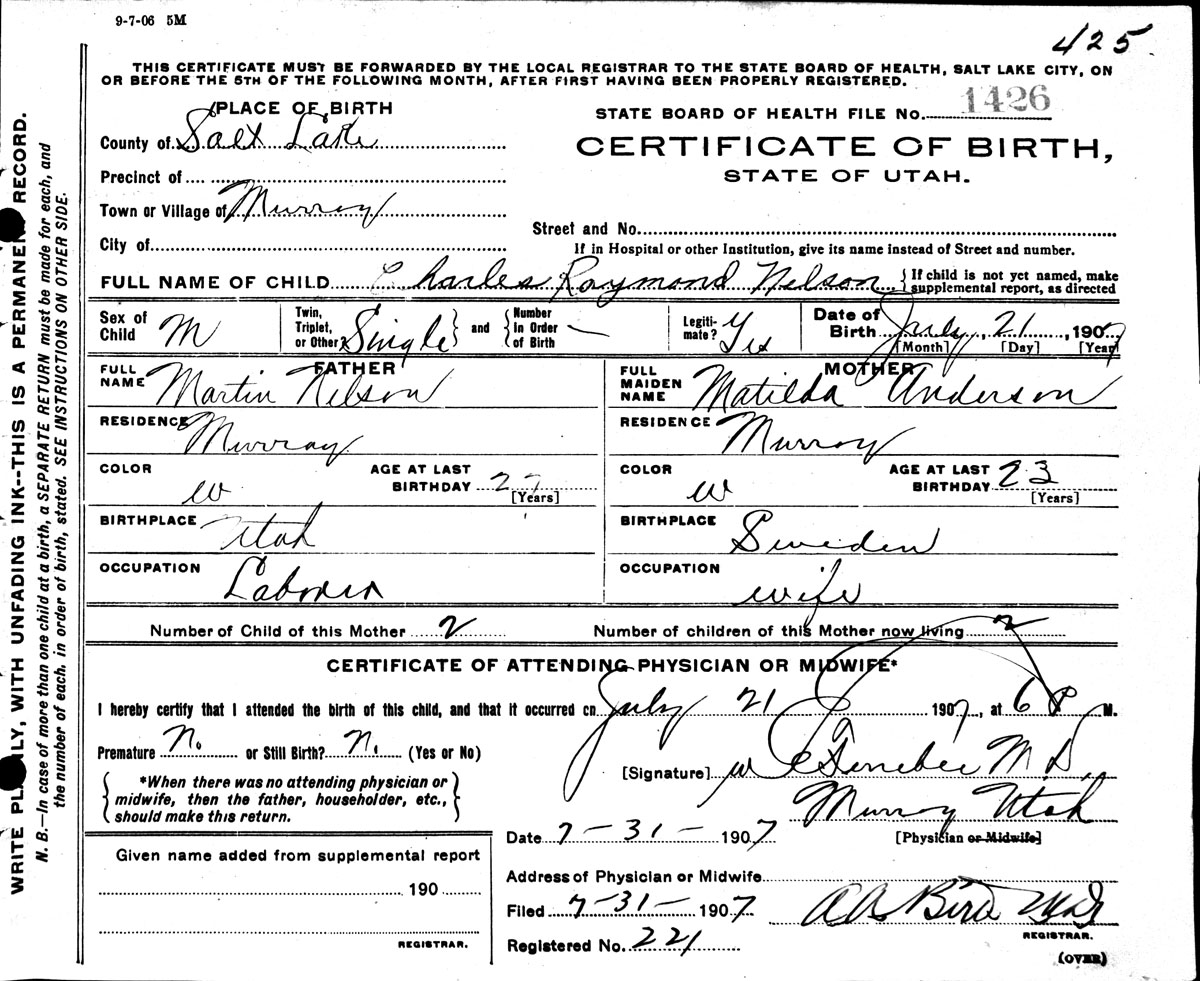 9-7-06 5M
425
THIS CERTIFICATE MUST BE FORWARDED BY THE LOCAL REGISTRAR TO THE STATE BOARD OF HEALTH, SALT LAKE CITY, ON
OR BEFORE THE 5TH OF THE FOLLOWING MONTH, AFTER FIRST HAVING BEEN PROPERLY REGISTERED.
PLACE OF BIRTH
STATE BOARD OF HEALTH FILE No. 1426
County of Salt Lake
CERTIFICATE OF BIRTH,
STATE OF UTAH.
Precinct of
Town or Village of Murray
Street and No.
City of
If in Hospital or other Institution, give its name instead of Street and number.
FULL NAME OF CHILD Charles Raymond Nelson { If child is not yet named, make
supplemental report, as directed
Sex of Child M
Twin, Triplet, or Other? Single } and { Number in Order of Birth —
Legiti-mate? Yes
Date of Birth July, 21, 1907
[Month] [Day] [Year]
FATHER
FULL NAME Martin Nelson
RESIDENCE Murray
COLOR W
AGE AT LAST BIRTHDAY 27
[Years]
BIRTHPLACE Utah
OCCUPATION Laborer
MOTHER
FULL MAIDEN NAME Matilda Anderson
RESIDENCE Murray
COLOR W
AGE AT LAST BIRTHDAY 23
[Years]
BIRTHPLACE Sweden
OCCUPATION wife
Number of Child of this Mother 2 Number of children of this Mother now living 2
CERTIFICATE OF ATTENDING PHYSICIAN OR MIDWIFE*
I hereby certify that I attended the birth of this child, and that it occurred on July 21 1907, at 6 P M.
Premature No or Still Birth? No (Yes or No)
{ *When there was no attending physician or
midwife, then the father, householder, etc.,
should make this return. }
[Signature] M.D.
Murray Utah
Date 7-31- 1907 [Physician or Midwife]
Given name added from supplemental report
190
REGISTRAR.
Address of Physician or Midwife
Filed 7-31- 1907 A A Bird
REGISTRAR.
Registered No. 221
(OVER)
WRITE PLAINLY, WITH UNFADING INK--THIS IS A PERMANENT RECORD.
N. B.—In case of more than one child at a birth, a SEPARATE RETURN must be made for each, and
the number of each, in order of birth, stated. SEE INSTRUCTIONS ON OTHER SIDE.